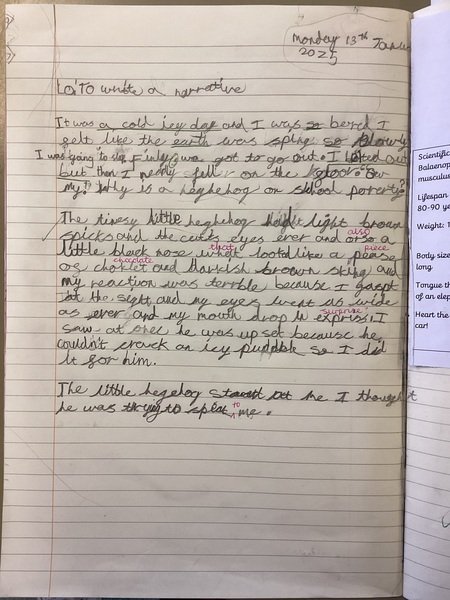 Monday 13th Janu
2025
Lo: To write a narrative
It was a cold icy day and I was so bord I
felt like the earth was sping so slowly
I was going to slep Finly we got to go out. I looked out
but then I nerly fell on the floor. Ow
my! Why is a heghehog on school porerty?
The tinesy little heghehog had light brown
spicks and the cutts eyes ever and also orso a
little black nose that what lookd like a piece pease
of chocolate choklet and darkish brown sking and
my reaction was terrble because I gaspt
at the sight and my eyes went as wide
as ever and my mouth drop in surprise expriss. I
saw at onec he was upset because he
couldn't crack an icy puddble so I did
it for him.
The little hegehog at me I thought
he was trying to speak to me.
Scientific
Balaenop
musculus
Lifespan
80-90 ye
Weight: 1
Body size
long
Tongue th
of an elep
Heart the
car!